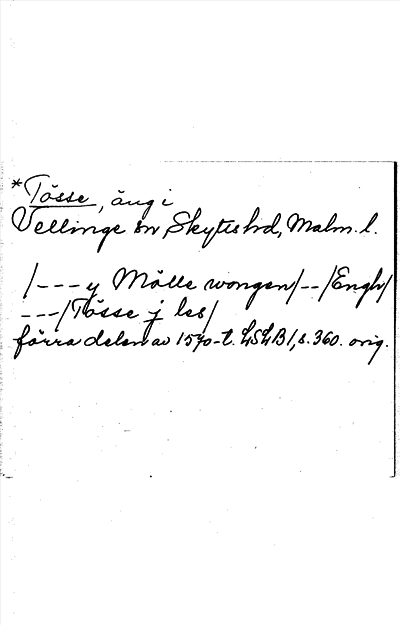 *Tösse, äng i
Vellinge sn, Skytts hd, Malm. l.
/--- y Mölle wongen/--/Engh/
---/Tösse j les/
förra delen av 1570-t. LSLB1, s. 360. orig.